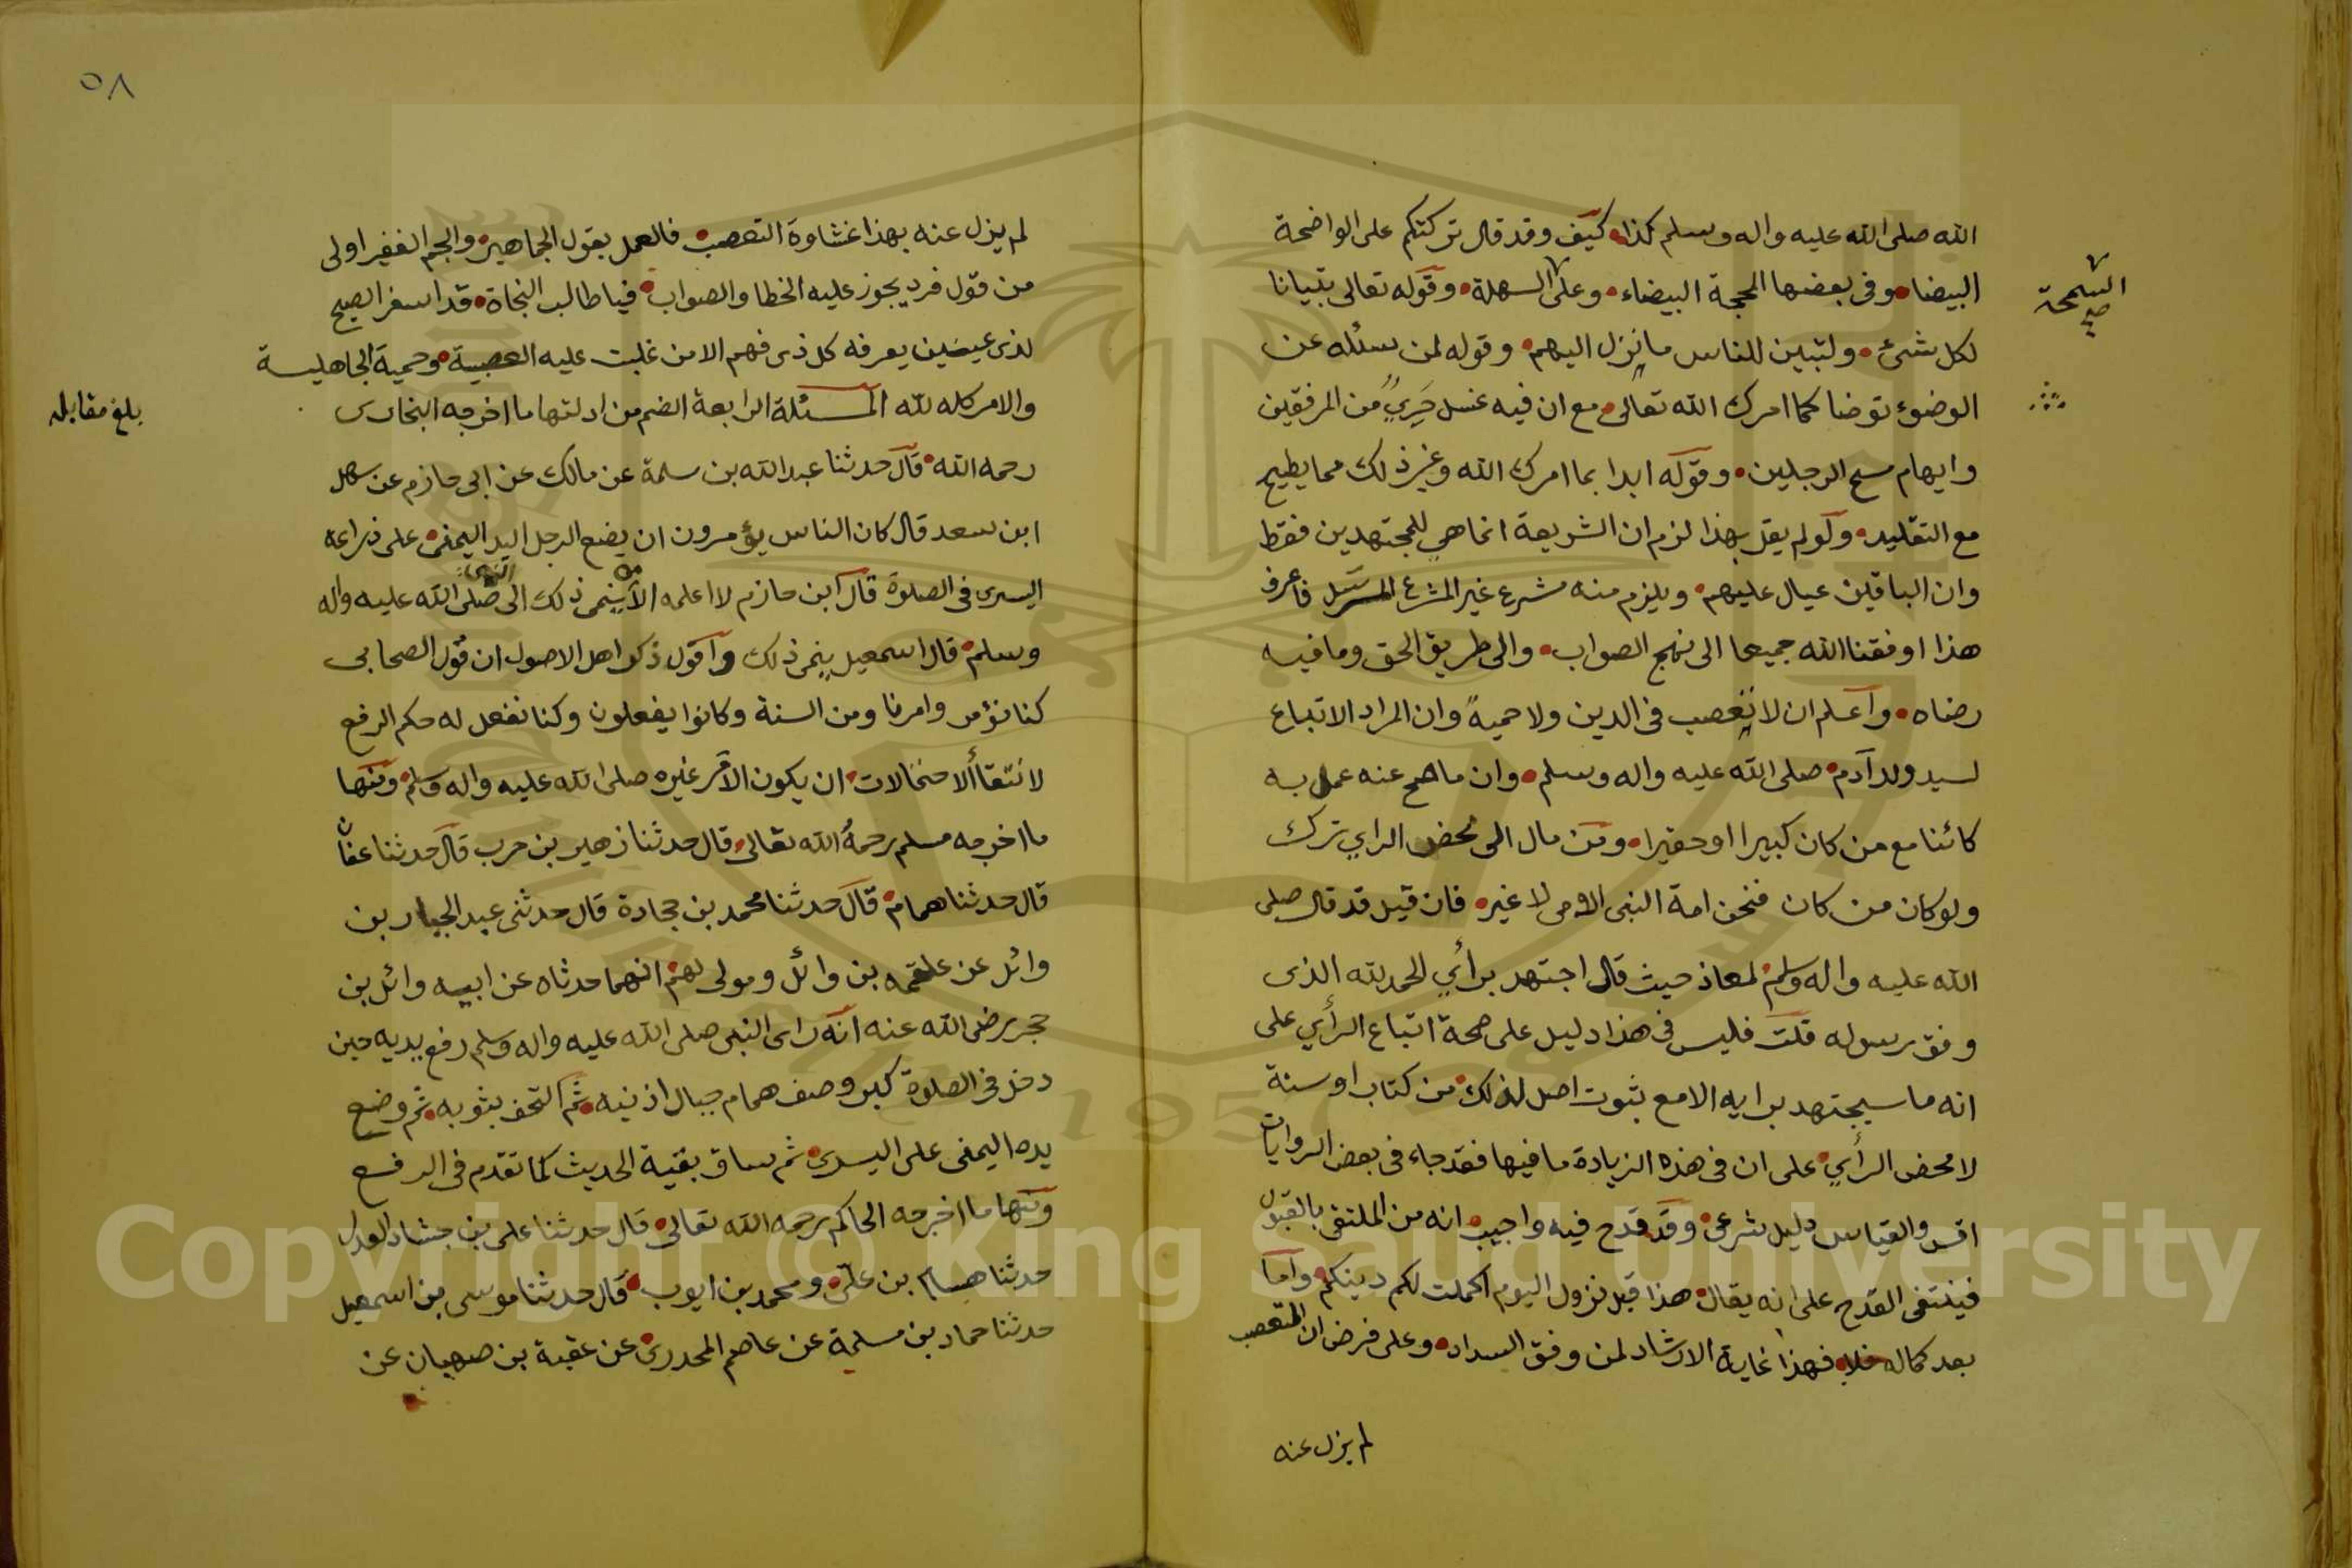 الله صلى الله عليه واله وسلم كذا كيف وقد قال تركتكم على الواضحة
البيضا وفى بعضها المحجة البيضاء وعلى السهلة وقوله تعالى تبيانا
السمحة صح
لكل شئ ولتبين للناس ما نزل اليهم وقوله لمن سئله عن
الوضوء توضا كما امرك الله تعالى مع ان فيه غسل من المرفقين
وايهام مسح الرجلين وقوله ابدا بما امرك الله وغير ذلك مما يطيح
مع التقليد ولو لم يقل بهذا لزم ان الشريعة انما هي للمجتهدين فقط
وان الباقين عيال عليهم ويلزم منه مشرع غير المشرع فاعرف
هذا اوفقنا الله جميعا الى نهج الصواب والى طريق الحق وما فيه
رضاه واعلم ان لا تعصب فى الدين ولا حمية وان المراد الاتباع
لسيد ولد آدم صلى الله عليه واله وسلم وان ما صح عنه عمل به
كائنا مع من كان كبيرا او حقيرا ومن مال الى محض الراي ترك
ولو كان من كان فنحن امة النبى الامى لا غير فان قيل قد قال صلى
الله عليه واله وسلم لمعاذ حيث قال اجتهد برأي الحمد لله الذى
وفق رسوله قلت فليس فى هذا دليل على صحة اتباع الرأي على
انه ما سيجتهد برايه الا مع ثبوت اصل لذلك من كتاب او سنة
لا محض الرأي على ان فى هذه الزيادة ما فيها فقد جاء فى بعض الروايات
اقس والقياس دليل شرعى وقد قدح فيه واجيب انه من الملتقى بالقبول
فينتفى القدح على انه يقال هذا قبل نزول اليوم اكملت لكم دينكم واما
بعد كماله فلا فهذا غاية الارشاد لمن وفق السداد وعلى فرض ان المتعصب
لم يزل عنه
٥٨
لم يزل عنه بهذا غشاوة التعصب فالعمل بقول الجماهير والجم الغفير اولى
من قول فرد يجوز عليه الخطا والصواب فيا طالب النجاة قد اسفر الصبح
لذى عينين يعرفه كل ذى فهم الا من غلبت عليه العصبية وحمية الجاهلية
والامر كله لله المسئلة الرابعة الضم من ادلتها ما اخرجه البخارى
بلغ مقابله
رحمه الله قال حدثنا عبد الله بن سلمة عن مالك عن ابى حازم عن سهل
ابن سعد قال كان الناس يؤمرون ان يضع الرجل اليد اليمنى على ذراعه
اليسرى فى الصلوة قال ابن حازم لا اعلمه الا ينمى ذلك الى النبى صلى الله عليه واله
وسلم قال اسمعيل ينمى ذلك واقول ذكر اهل الاصول ان قول الصحابى
كنا نؤمر وامرنا ومن السنة وكانوا يفعلون وكنا نفعل له حكم الرفع
ان يكون الآمر غيره صلى الله عليه واله وسلم ومنها
ما اخرجه مسلم رحمه الله تعالى قال حدثنا زهير بن حرب قال حدثنا عفان
قال حدثنا همام قال حدثنا محمد بن جحادة قال حدثنى عبد الجبار بن
وائل عن علقمه بن وائل ومولى لهم انهما حدثاه عن ابيه وائل بن
حجر رضى الله عنه انه راى النبى صلى الله عليه واله وسلم رفع يديه حين
دخل فى الصلوة كبر وصف همام حيال اذنيه ثم التحف بثوبه ثم وضع
يده اليمنى على اليسرى ثم ساق بقية الحديث كما تقدم فى الرفع
ومنها ما اخرجه الحاكم رحمه الله تعالى قال حدثنا على بن حمشاد العدل
حدثنا هسام بن على ومحمد بن ايوب قال حدثنا موسى بن اسمعيل
حدثنا حماد بن سلمة عن عاصم الجحدرى عن عقبة بن صهبان عن
Copyright © King Saud University
1957